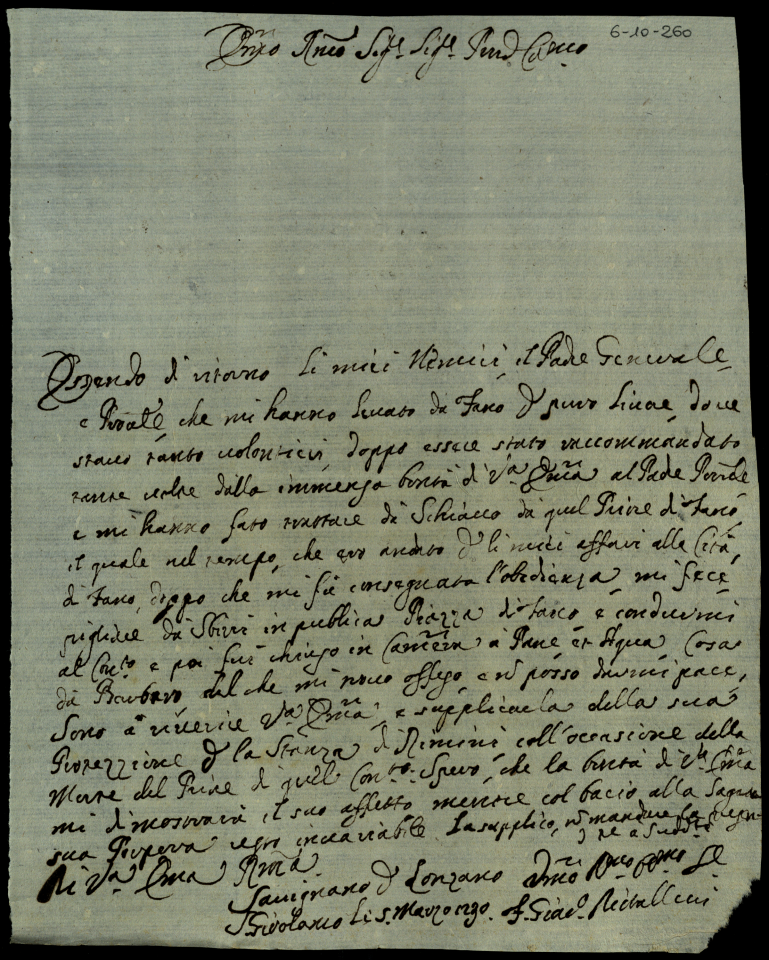 6-10-260
Emo Rmo Sigr Sigr Prne Colmo
Essendo di ritorno li miei Nemici, il Padre Generale
e Prõale che mi hanno levato da Fano p puro livore, dove
stavo tanto volontieri doppo essere stato raccommandato
tante volte dalla immensa bontà di Va Ema al Padre Prõale
e mi hanno fato trattare da Schiavo da quel Priore di Fano
il quale nel tempo, che ero andato p li miei affari alla Cità
di Fano, doppo che mi fù consegnata l'obedienza mi fece
pigliare da Sbirri in publica Piazza di Fano, e condurmi
al Conto e poi fui chiuso in Camera a Pane, et Aqua, Cosa
da Barbaro, del che mi trovo offeso, e nō posso darmi pace,
Sono a riverire Va Ema, e supplicarla della sua
Protezzione p la Stanza di Rimini coll'occasione della
Morte del Priore di quel Conto. Spero, che la bontà di Va Ema
mi dimostrarà il suo affetto mentre col bacio alla Sagra
sua Porpora resto incaviabile. La supplico, nō mandare
Di Va Ema Rma
Savignano p Lonzano
S. Girolamo li 5. Marzo 1730. F. Giaco